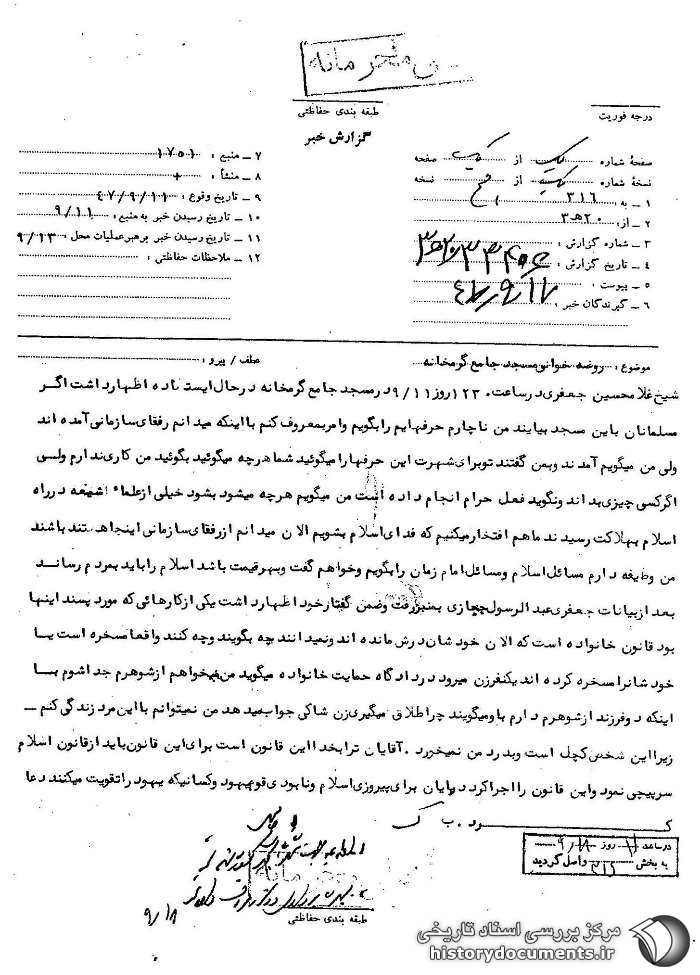 محرمانه
طبقه بندی حفاظتی
درجه فوریت
گزارش خبر
صفحهٔ شماره یک از یک صفحه
نسخهٔ شماره یک از پنج نسخه
۱ ـ به : ۳۱۶
۲ ـ از : ۲۰هـ۳
۳ ـ شماره گزارش :
۴ ـ تاریخ گزارش :
۵ ـ پیوست :
۶ ـ گیرندگان خبر :
۷ ـ منبع : ۱۷۵۱
۸ ـ منشأ : +
۹ ـ تاریخ وقوع : ۴۷/۹/۱۱
۱۰ ـ تاریخ رسیدن خبر به منبع : ۹/۱۱
۱۱ ـ تاریخ رسیدن خبر برهبر عملیات محل : ۹/۱۳
۱۲ ـ ملاحظات حفاظتی :
موضوع : روضه خوانی مسجد جامع گرمخانه
عطف / پیرو :
شیخ غلامحسین جعفری در ساعت ۱۲۳۰ روز ۹/۱۱ در مسجد جامع گرمخانه در حال ایستاده اظهار داشت اگر
مسلمانان باین مسجد بیایند من ناچارم حرفهایم را بگویم و امر بمعروف کنم با اینکه میدانم رفقای سازمانی آمده اند
ولی من میگویم آمدند و بمن گفتند تو برای شهرت این حرفها را میگوئید شما هر چه میگوئید بگوئید من کاری ندارم ولی
اگر کسی چیزی بداند و نگوید فعل حرام انجام داده است من میگویم هر چه میشود بشود خیلی از علماء شیعه در راه
اسلام بهلاکت رسیدند ما هم افتخار میکنیم که فدای اسلام بشویم الان میدانم از رفقای سازمانی اینجا هستند باشند
من وظیفه دارم مسائل اسلام و مسائل امام زمان را بگویم و خواهم گفت و بهر قیمت باشد اسلام را باید بمردم رساند
بعد از بیانات جعفری عبدالرسول حجازی بمنبر رفت و ضمن گفتار خود اظهار داشت یکی از کارهائی که مورد پسند اینها
بود قانون خانواده است که الان خودشان درش مانده اند و نمیدانند بچه بگویند و چه کنند واقعا مسخره است یا
خودشانرا مسخره کرده اند یکنفر زن میرود در دادگاه حمایت خانواده میگوید من میخواهم از شوهرم جدا شوم با
اینکه دو فرزند از شوهرم دارم باو میگویند چرا طلاق میگیری زن شاکی جواب میدهد من نمیتوانم با این مرد زندگی کنم ـ
زیرا این شخص کچل است و بدرد من نمیخورد . آقایان ترا بخدا این قانون است برای این قانون باید از قانون اسلام
سرپیچی نمود و این قانون را اجرا کرد در پایان برای پیروزی اسلام و نابودی قوم یهود و کسانیکه یهود را تقویت میکنند دعا
کرد . ب ک
در ساعت ۱۱ روز ۹/۱۸
به بخش ۳۱۶ واصل گردید
طبقه بندی حفاظتی
۹/۱۸
مرکز بررسی اسناد تاریخی
historydocuments.ir